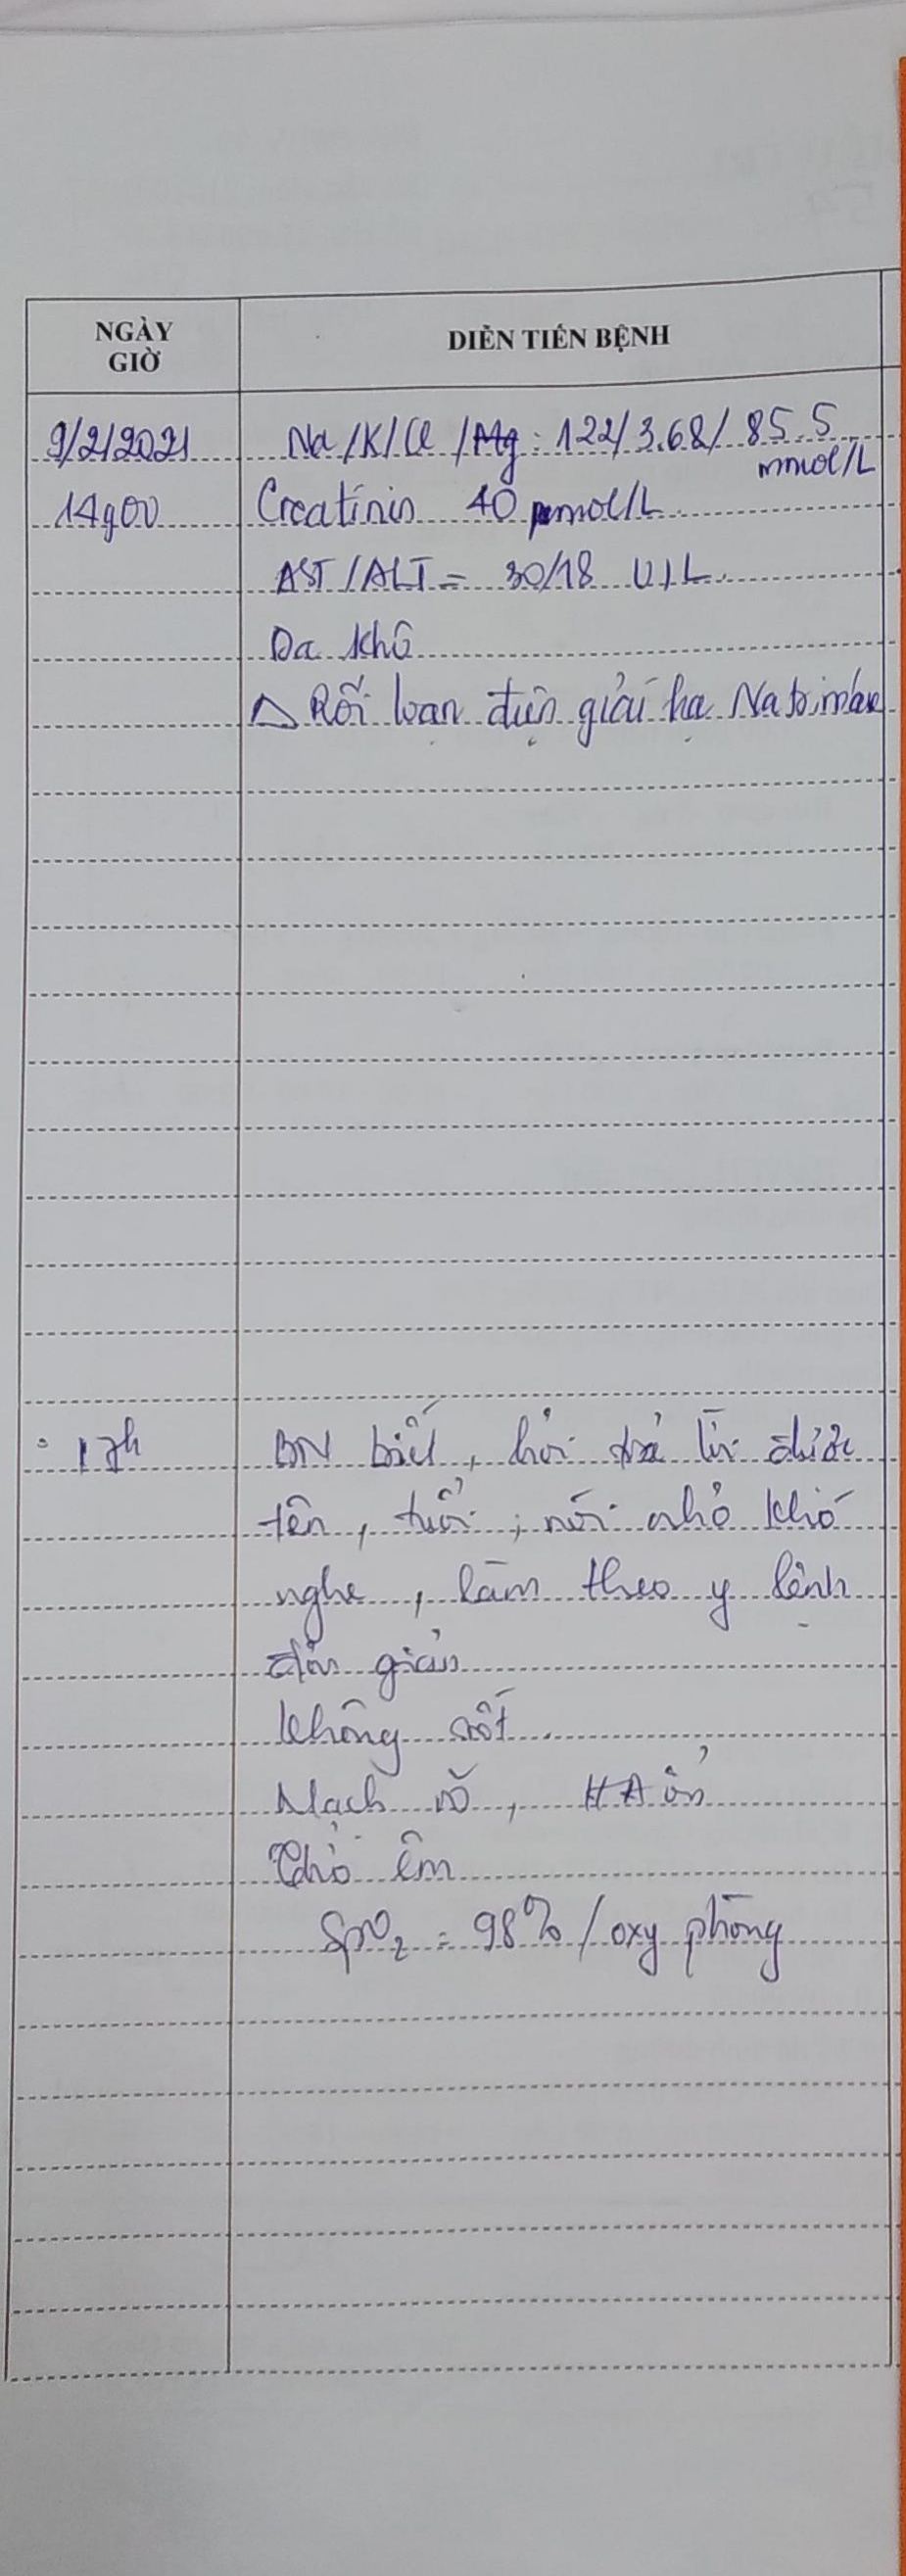 NGÀY
GIỜ
DIỄN TIẾN BỆNH
9/2/2021
Na/K/Cl/Mg: 122/3.68/85.5
mmol/L
14g00
Creatinin 40 µmol/L
AST/ALT = 30/18 U/L.
Da khô
△ Rối loạn điện giải hạ Natri máu
17h
BN biết, hỏi trả lời được
tên, tuổi, nói nhỏ khó
nghe, làm theo y lệnh
đơn giản
Không sốt.
Mạch rõ, HA ổn
Thở êm
SpO2 = 98% / oxy phòng